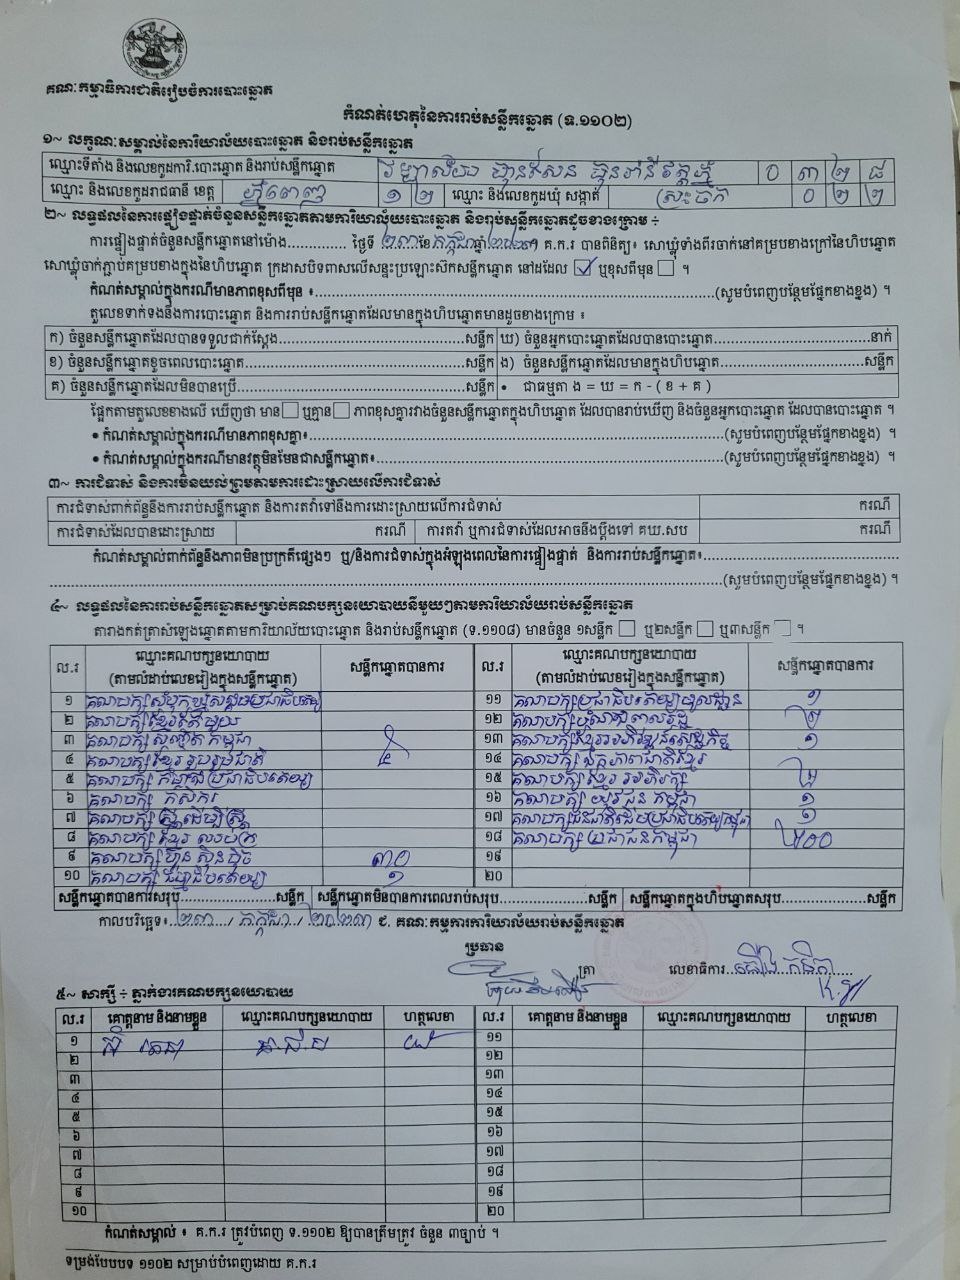 គណៈកម្មាធិការជាតិរៀបចំការបោះឆ្នោត
កំណត់ហេតុនៃការរាប់សន្លឹកឆ្នោត (ទ.១១០២)
១~ លក្ខណៈសម្គាល់នៃការិយាល័យបោះឆ្នោត និងរាប់សន្លឹកឆ្នោត
ឈ្មោះទីតាំង និងលេខកូដការិ.បោះឆ្នោត និងរាប់សន្លឹកឆ្នោត ០ ៣ ២ ៨
ឈ្មោះ និងលេខកូដរាជធានី ខេត្ត ភ្នំពេញ ១ ២ ឈ្មោះ និងលេខកូដឃុំ សង្កាត់ ស្រះចក ០ ២ ២
២~ លទ្ធផលនៃការផ្ទៀងផ្ទាត់ចំនួនសន្លឹកឆ្នោតតាមការិយាល័យបោះឆ្នោត និងរាប់សន្លឹកឆ្នោតដូចខាងក្រោម ÷
ការផ្ទៀងផ្ទាត់ចំនួនសន្លឹកឆ្នោតនៅម៉ោង.............. ថ្ងៃទី ២៣ ខែ កក្កដា ឆ្នាំ ២០២៣ គ.ក.រ បានពិនិត្យ៖ សោឃ្លុំទាំងពីរចាក់នៅគម្របខាងក្រៅនៃហិបឆ្នោត
សោឃ្លុំចាក់ភ្ជាប់គម្របខាងក្នុងនៃហិបឆ្នោត ក្រដាសបិទពាសលើសន្ទះប្រឡោះស៊កសន្លឹកឆ្នោត នៅដដែល ☑ ឬខុសពីមុន ☐ ។
កំណត់សម្គាល់ក្នុងករណីមានភាពខុសពីមុន ៖...........(សូមបំពេញបន្ថែមផ្នែកខាងខ្នង) ។
តួលេខទាក់ទងនឹងការបោះឆ្នោត និងការរាប់សន្លឹកឆ្នោតដែលមានក្នុងហិបឆ្នោតមានដូចខាងក្រោម ៖
ក) ចំនួនសន្លឹកឆ្នោតដែលបានទទួលជាក់ស្តែង...........សន្លឹក ឃ) ចំនួនអ្នកបោះឆ្នោតដែលបានបោះឆ្នោត...........នាក់
ខ) ចំនួនសន្លឹកឆ្នោតខូចពេលបោះឆ្នោត...........សន្លឹក ង) ចំនួនសន្លឹកឆ្នោតដែលមានក្នុងហិបឆ្នោត...........សន្លឹក
គ) ចំនួនសន្លឹកឆ្នោតដែលមិនបានប្រើ...........សន្លឹក • ជាធម្មតា ង = ឃ = ក - ( ខ + គ )
ផ្អែកតាមតួលេខខាងលើ ឃើញថា មាន ☐ ឬគ្មាន ☐ ភាពខុសគ្នារវាងចំនួនសន្លឹកឆ្នោតក្នុងហិបឆ្នោត ដែលបានរាប់ឃើញ និងចំនួនអ្នកបោះឆ្នោត ដែលបានបោះឆ្នោត ។
• កំណត់សម្គាល់ក្នុងករណីមានភាពខុសគ្នា៖...........(សូមបំពេញបន្ថែមផ្នែកខាងខ្នង) ។
• កំណត់សម្គាល់ក្នុងករណីមានវត្ថុមិនមែនជាសន្លឹកឆ្នោត៖...........(សូមបំពេញបន្ថែមផ្នែកខាងខ្នង) ។
៣~ ការជំទាស់ និងការមិនយល់ព្រមតាមការដោះស្រាយលើការជំទាស់
ការជំទាស់ពាក់ព័ន្ធនឹងការរាប់សន្លឹកឆ្នោត និងការតវ៉ាទៅនឹងការដោះស្រាយលើការជំទាស់ ករណី
ការជំទាស់ដែលបានដោះស្រាយ ករណី ការតវ៉ា ឬការជំទាស់ដែលអាចនឹងប្តឹងទៅ គឃ.សប ករណី
កំណត់សម្គាល់ពាក់ព័ន្ធនឹងភាពមិនប្រក្រតីផ្សេងៗ ឬ/និងការជំទាស់ក្នុងអំឡុងពេលនៃការផ្ទៀងផ្ទាត់ និងការរាប់សន្លឹកឆ្នោត៖...........
...........(សូមបំពេញបន្ថែមផ្នែកខាងខ្នង) ។
៤~ លទ្ធផលនៃការរាប់សន្លឹកឆ្នោតសម្រាប់គណបក្សនយោបាយនីមួយៗតាមការិយាល័យរាប់សន្លឹកឆ្នោត
តារាងកត់ត្រាសំឡេងឆ្នោតតាមការិយាល័យបោះឆ្នោត និងរាប់សន្លឹកឆ្នោត (ទ.១១០៨) មានចំនួន ១សន្លឹក ☐ ឬ២សន្លឹក ☐ ឬ៣សន្លឹក ☐ ។
ល.រ ឈ្មោះគណបក្សនយោបាយ (តាមលំដាប់លេខរៀងក្នុងសន្លឹកឆ្នោត) សន្លឹកឆ្នោតបានការ ល.រ ឈ្មោះគណបក្សនយោបាយ (តាមលំដាប់លេខរៀងក្នុងសន្លឹកឆ្នោត) សន្លឹកឆ្នោតបានការ
១ ១១ ១
២ គណបក្សខ្មែរតែមួយ ១២ ២
៣ ១៣ ១
៤ គណបក្សខ្មែររួបរួមជាតិ ៤ ១៤ គណបក្សឯកភាពជាតិខ្មែរ
៥ គណបក្សកម្លាំងប្រជាធិបតេយ្យ ១៥ គណបក្សខ្មែរអភិរក្ស
៦ គណបក្ស កសិករ ១៦ គណបក្ស យុវជនកម្ពុជា ១
៧ គណបក្សស្ត្រីដើម្បីស្ត្រី ១៧ គណបក្សជនជាតិដើមប្រជាធិបតេយ្យកម្ពុជា ១
៨ ១៨ គណបក្ស ប្រជាជនកម្ពុជា ២០០
៩ គណបក្ស ហ៊្វុនស៊ិនប៉ិច ៣០ ១៩
១០ គណបក្ស ធម្មាធិបតេយ្យ ១ ២០
សន្លឹកឆ្នោតបានការសរុប...........សន្លឹក សន្លឹកឆ្នោតមិនបានការពេលរាប់សរុប...........សន្លឹក សន្លឹកឆ្នោតក្នុងហិបឆ្នោតសរុប...........សន្លឹក
កាលបរិច្ឆេទ៖ ២៣ / កក្កដា / ២០២៣ ជ. គណៈកម្មការការិយាល័យរាប់សន្លឹកឆ្នោត
ប្រធាន
ត្រា លេខាធិការ
៥~ សាក្សី ÷ ភ្នាក់ងារគណបក្សនយោបាយ
ល.រ គោត្តនាម និងនាមខ្លួន ឈ្មោះគណបក្សនយោបាយ ហត្ថលេខា ល.រ គោត្តនាម និងនាមខ្លួន ឈ្មោះគណបក្សនយោបាយ ហត្ថលេខា
១ ១១
២ ១២
៣ ១៣
៤ ១៤
៥ ១៥
៦ ១៦
៧ ១៧
៨ ១៨
៩ ១៩
១០ ២០
កំណត់សម្គាល់ ៖ គ.ក.រ ត្រូវបំពេញ ទ.១១០២ ឱ្យបានត្រឹមត្រូវ ចំនួន ៣ច្បាប់ ។
ទម្រង់បែបបទ ១១០២ សម្រាប់បំពេញដោយ គ.ក.រ